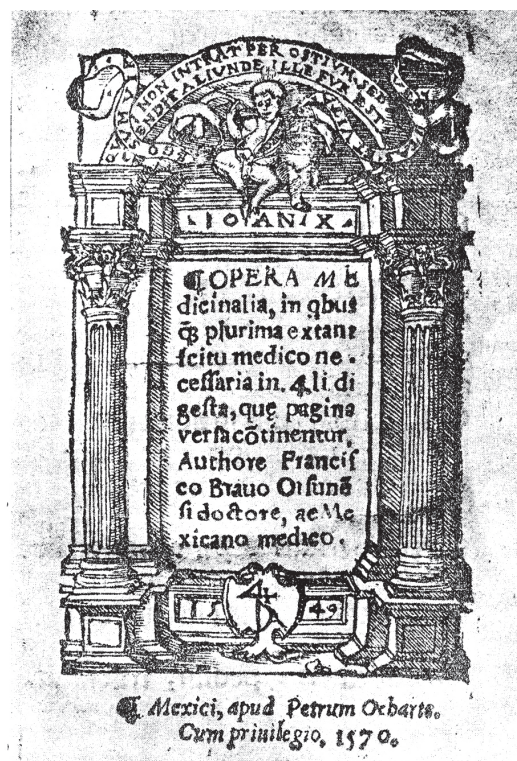 QVI NON INTRAT PER OSTIVM, SED
ASCENDIT ALIVNDE ILLE FVR EST
IOAN X
¶OPERA ME
dicinalia, in qbus
q̃ plurima extant
scitu medico ne
cessaria in. 4. li. di
gesta, quę pagina
versa cõtinentur,
Authore Francis
co Brauo Orsunẽ
si doctore, ac Me
xicano medico.
15 49
¶ Mexici, apud Petrum Ocharte.
Cum priuilegio. 1570.